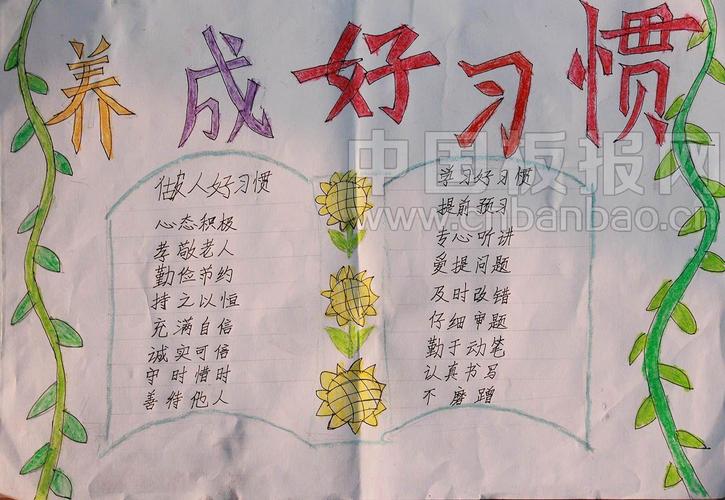 养成好习惯
做人好习惯
心态积极
孝敬老人
勤俭节约
持之以恒
充满自信
诚实可信
守时惜时
善待他人
学习好习惯
提前预习
专心听讲
爱提问题
及时改错
仔细审题
勤于动笔
认真书写
不磨蹭
中国板报网
www.cnbanbao.cn